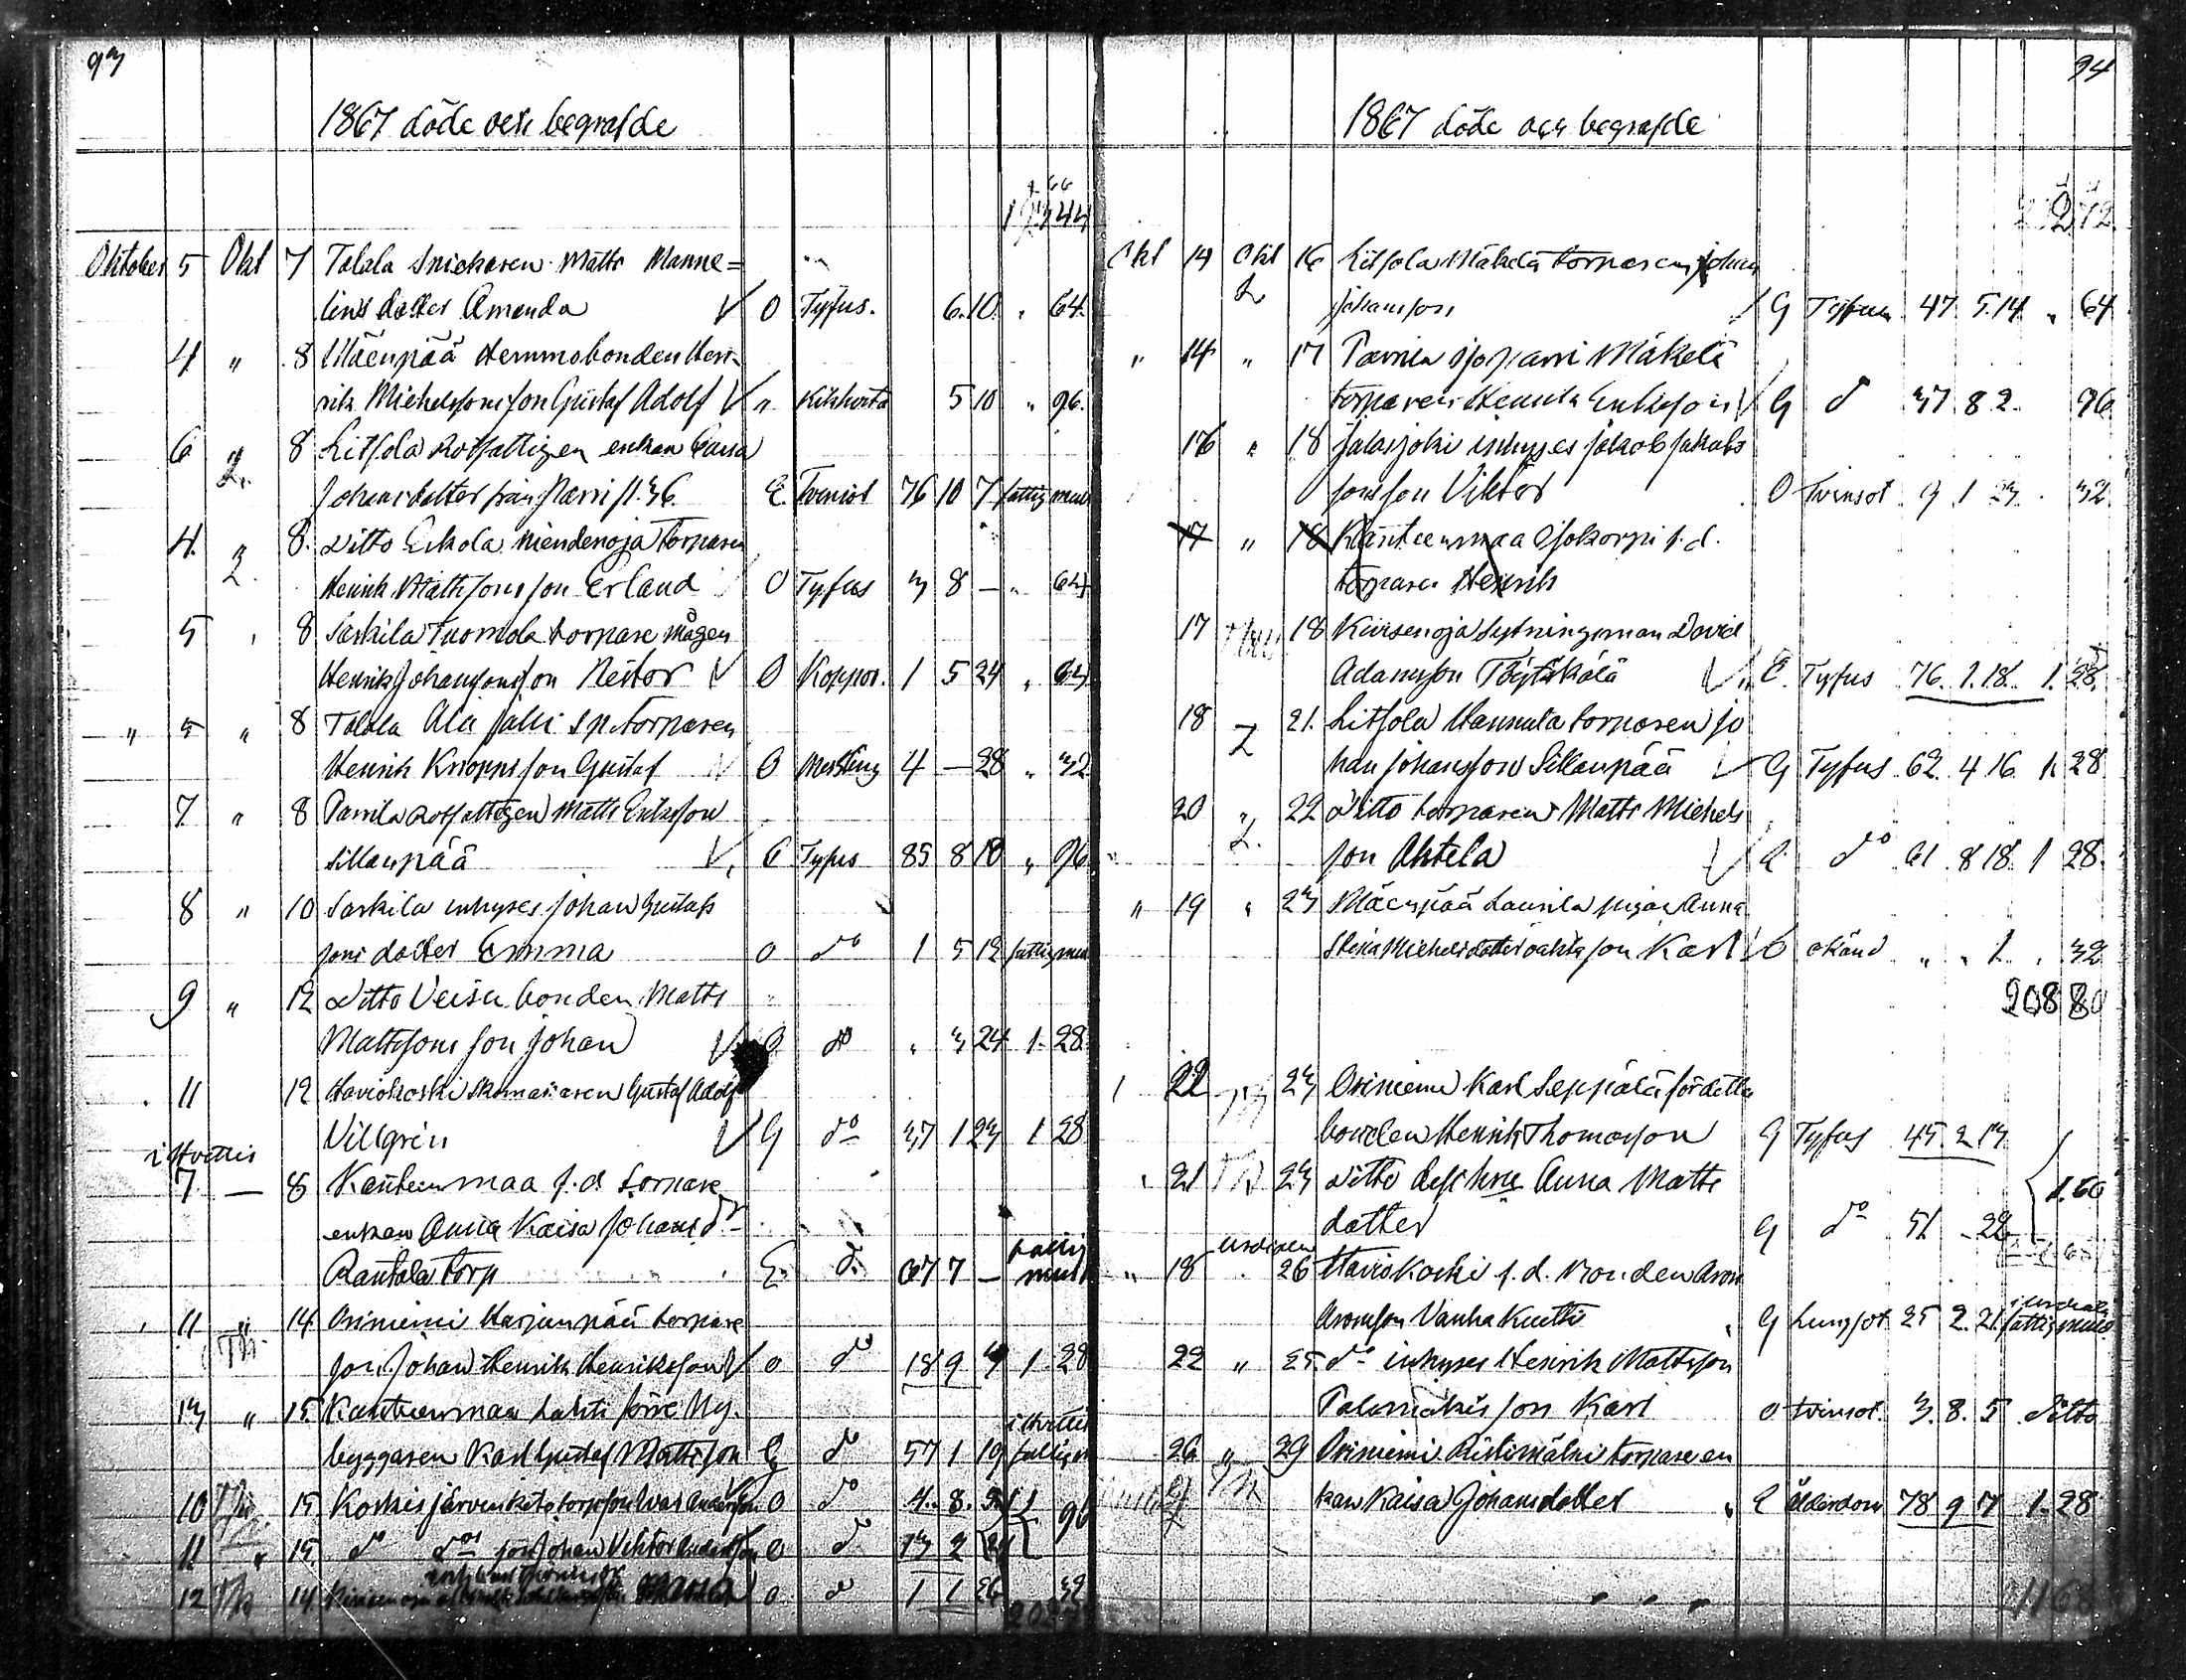 93
1867 döde och begrafde
Oktober 5 Okt 7 Talala Snickaren Matts Manne=
lins dotter Amanda O Tyfus. 6. 10. " 64.
4 " 8 Mäenpää Hemmobonden Hen-
rik Michelssons son Gustaf Adolf " Kikhosta 5 10 " 96.
6 " 8 Litsola Rotfattigen enkan Caisa
Johansdotter från Parri E. Tvinsot 76 10 7 fattig mull
4. 8. Ditto Eskola niendenoja Torparen
Henrik Mattssons son Erland O Tyfus 3 8 — " 64
5 " 8 Särkilä Tuomola torpare mågen
Henrik Johanssons son Nestor O Koppor. 1 5 24 " 64
" 5 " 8 Talala Ala Torparen
Henrik son Gustaf O Messling 4 — 28 " 32
7 " 8 Panila Rotfattigen Matts Eriksson
Sillanpää E Tyfus 85 8 18 " 96
8 " 10 Särkilä inhyses Johan Gustafs
sons dotter Emma O do 1 5 12 fattig mull
9 " 12 Ditto bonden Matts
Mattssons son Johan O do " 3 24 1. 28
11 12 Haviokoski Skomakaren Gustaf Adolf
Villgrén G do 37 1 23 1 28
i Hvittis
7. — 8 Kanteenmaa f.d. torpare
enkan Anna Kaisa Johansdr
Rantala torp E. do 67 7 — fattig mull
11 " 14 Oriniemi Harjunpää torpare
son Johan Henrik Henriksson O do 18 9 4 1. 28
13 " 15 Kanteenmaa Lahti förre Ny-
byggaren Karl Gustaf Mattsson G do 57 1 19
10 15 Koskisjärven O do 4. 8.
11 " 15 do son Johan Viktor O do 13 2
12 14 O do 1 1 26 32
94
1867 döde och begrafde
Okt 14 Okt 16 Litsola Mäkelä torparen Johan
Johansson G Tyfus 47 5. 14 " 64
" 14 " 17 Parrila Mäkelä
torparen Henrik Eriksson G do 37 8 2. 96
16 " 18 Jalasjoki inhyses Jakob Jakobs
sons son Viktor O Tvinsot 3 1 23 . 32
17 " 18 Kanteenmaa Ojokorpi f.d.
torparen Henrik
17 18 Kiisenoja Sytningsman David
Adamsson Töyliskälä E. Tyfus 76. 1. 18. 1. 28.
18 21. Litsola Hannula torparen Jo
han Johansson Sillanpää G Tyfus 62 4 16. 1. 28
20 " 22 Ditto torparen Matts Michels
son Ahtela G do 61 8 18 1 28.
" 19 " 23 Mäenpää Laurila pigan Anna
Stina Michelsdotter oäkta son Karl O okänd " " 1 . 32
208 80
22 23 Oriniemi Karl Seppälä fördetta
bonden Henrik Thomasson G Tyfus 45 2 14
21 23 Ditto dess hru Anna Matts
dotter G do 51 – 22 1. 60
" 18 " 26 Haviokoski f.d. Bonden Aron
Aronsson Vanha Kuitti G Lungsot 25 2. 21. fattig mull
22 " 25 do inhyses Henrik Mattsson
Palomäkis son Karl O tvinsot. 3. 8. 5. Ditto
26 " 29 Oriniemi Ristimäki torpare en
kan Kaisa Johansdotter E Ålderdom 78 9 7 1. 28